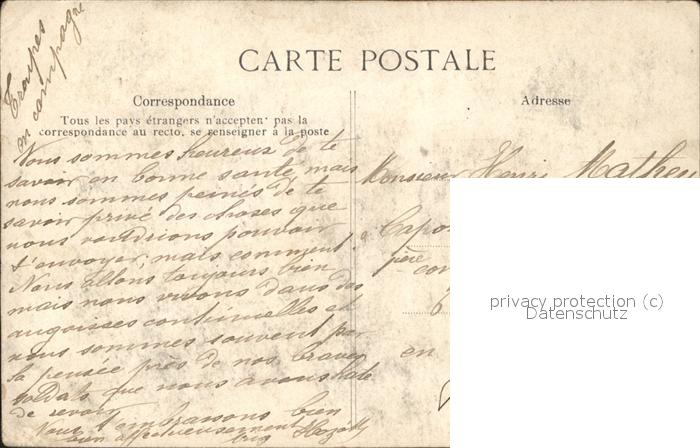 Troupes
en campagne
CARTE POSTALE
Correspondance
Tous les pays étrangers n'acceptent pas la
correspondance au recto, se renseigner à la poste
Nous sommes heureux de te
savoir en bonne santé, mais
nous sommes peinés de te
savoir privé des choses que
nous voudrions pouvoir
t'envoyer, mais comment?
Nous allons toujours bien
mais nous vivons dans des
angoisses continuelles et
nous sommes souvent par
la pensée près de nos braves
soldats que nous avons hâte
de revoir
Nous t'embrassons bien
bien affectueusement
Adresse
Monsieur Henri Matheu
Capo
père
con
en
privacy protection (c)
Datenschutz